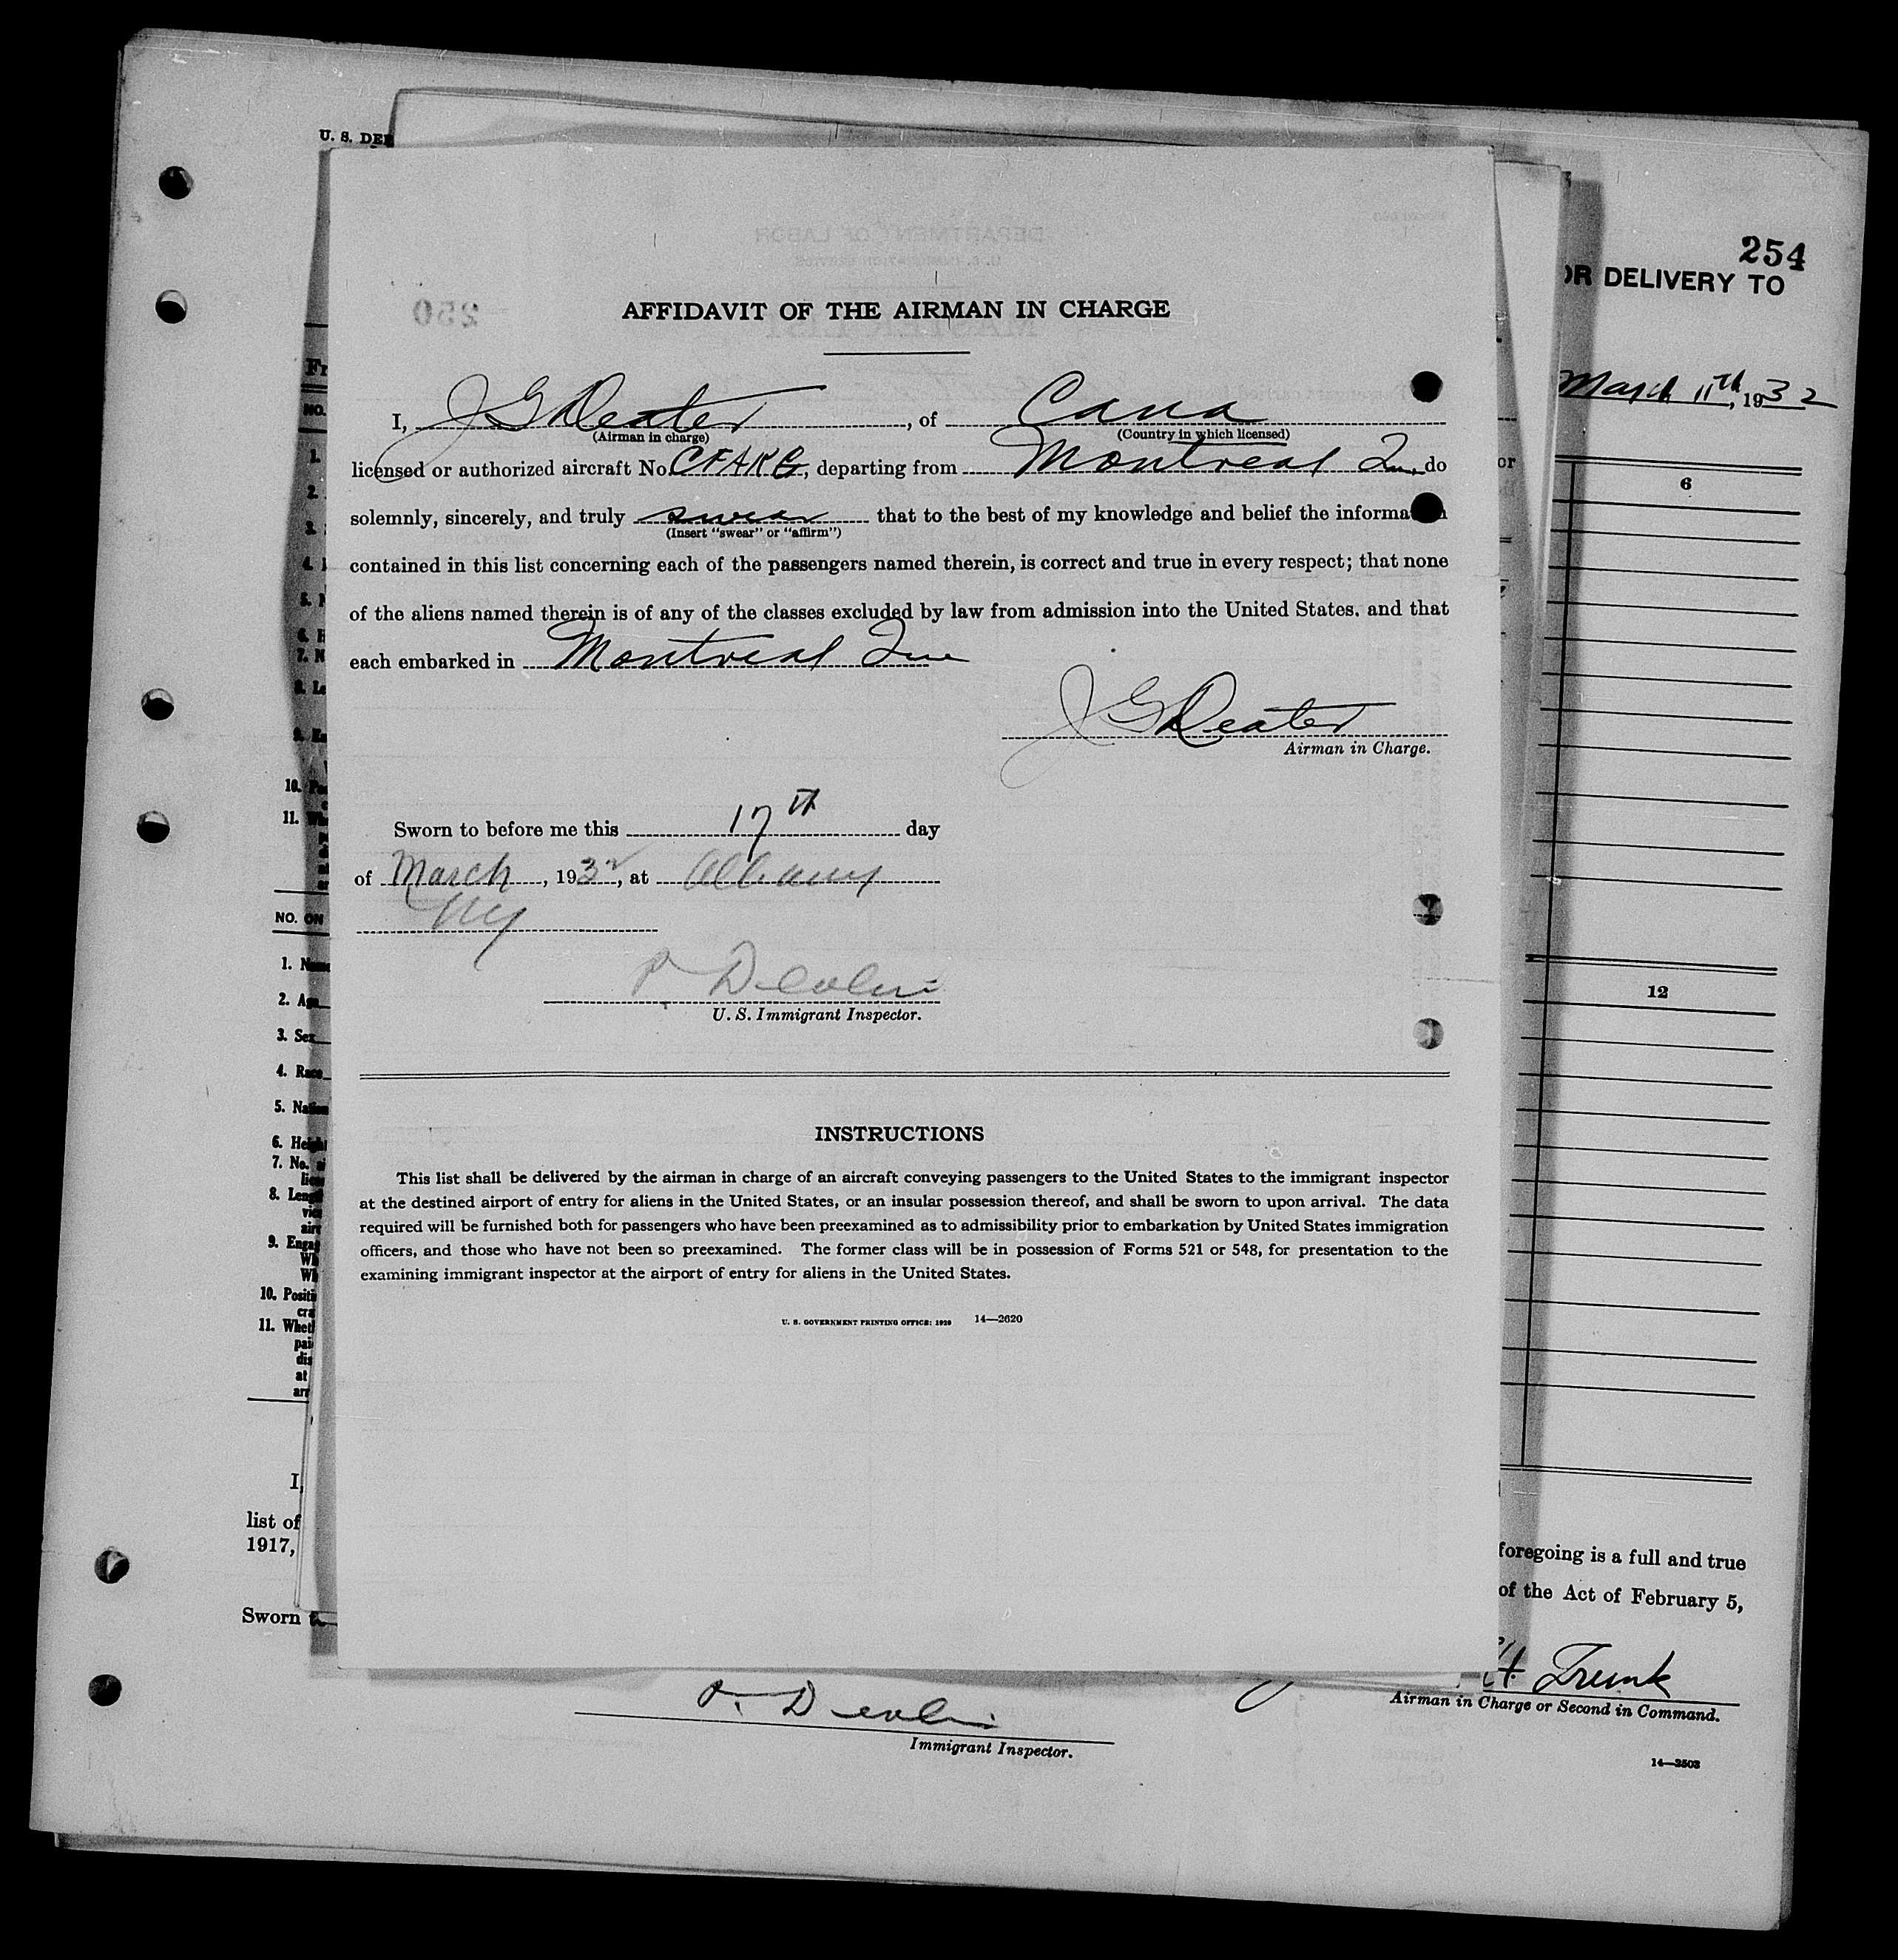 U. S. DEP
254
OR DELIVERY TO
March 11th, 1932
AFFIDAVIT OF THE AIRMAN IN CHARGE
I, J G Deater, of Cana
(Airman in charge) (Country in which licensed)
licensed or authorized aircraft No. CFAKB, departing from Montreal Que do
solemnly, sincerely, and truly swear that to the best of my knowledge and belief the information
(Insert "swear" or "affirm")
contained in this list concerning each of the passengers named therein, is correct and true in every respect; that none
of the aliens named therein is of any of the classes excluded by law from admission into the United States, and that
each embarked in Montreal Que
J G Deater
Airman in Charge.
Sworn to before me this 17th day
of March, 1932, at Albany
NY
P Devlin
U. S. Immigrant Inspector.
INSTRUCTIONS
This list shall be delivered by the airman in charge of an aircraft conveying passengers to the United States to the immigrant inspector
at the destined airport of entry for aliens in the United States, or an insular possession thereof, and shall be sworn to upon arrival. The data
required will be furnished both for passengers who have been preexamined as to admissibility prior to embarkation by United States immigration
officers, and those who have not been so preexamined. The former class will be in possession of Forms 521 or 548, for presentation to the
examining immigrant inspector at the airport of entry for aliens in the United States.
U. S. GOVERNMENT PRINTING OFFICE: 1929 14—2620
Fr
NO.
1.
2.
3.
4.
5.
6.
7. N
8. Le
9. En
10.
11.
NO. ON
1. Name
2. Age
3. Sex
4. Race
5. Nation
6. Height
7. No.
8. Leng
9. Engag
10. Positi
cra
11. Whet
pai
dis
at
arr
or
6
12
I,
list of
1917,
Sworn t
foregoing is a full and true
of the Act of February 5,
H. Trunk
Airman in Charge or Second in Command.
P. Devlin
Immigrant Inspector.
14—3503